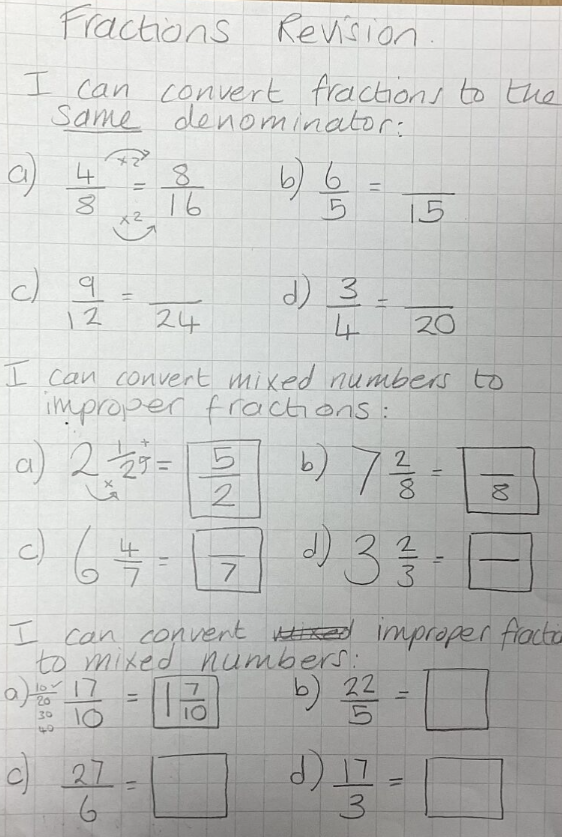 Fractions Revision.
I can convert fractions to the
same denominator:
a) 4/8 = 8/16 ×2 ×2 b) 6/5 = /15
c) 9/12 = /24 d) 3/4 = /20
I can convert mixed numbers to
improper fractions:
a) 2 1/2 = 5/2 + × b) 7 2/8 = /8
c) 6 4/7 = /7 d) 3 2/3 =
I can convert improper fractio
to mixed numbers:
a) 10 ✓ 20 30 40 17/10 = 1 7/10 b) 22/5 =
c) 27/6 = d) 17/3 =